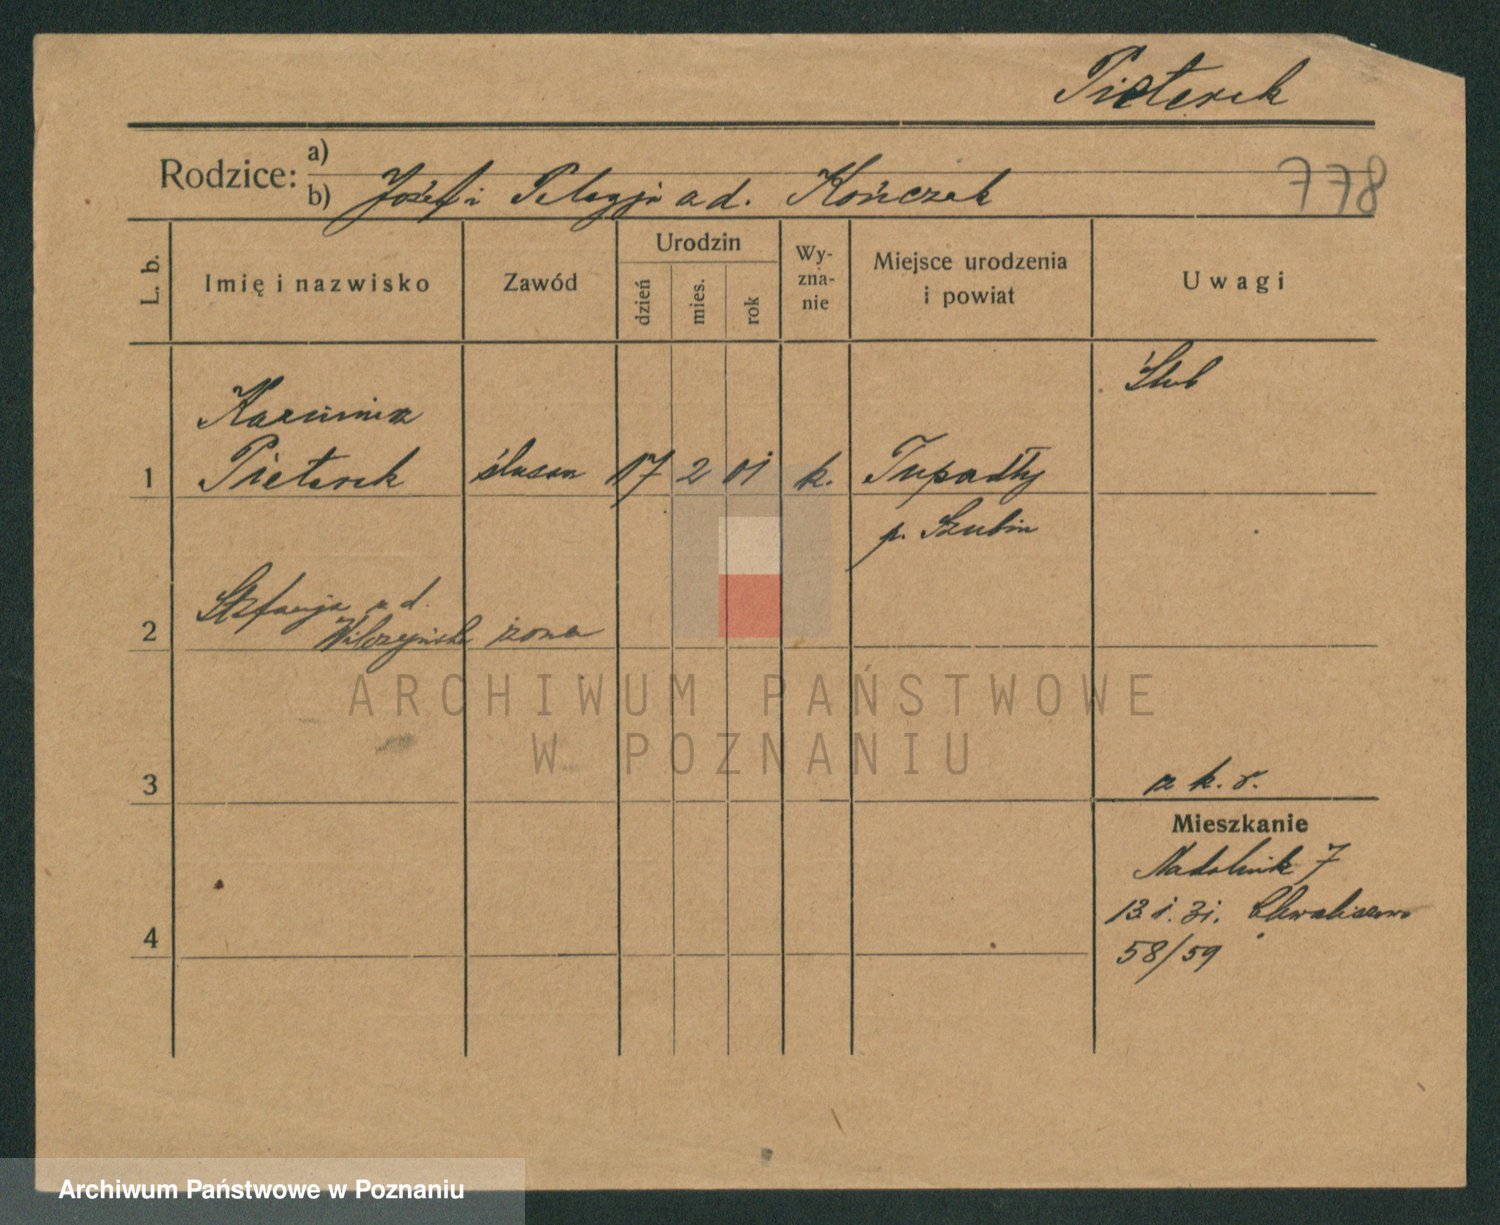 Pieterek
Rodzice:
a)
b) Józef i Pelagja a d. Kończak
778
L. b.
Imię i nazwisko
Zawód
Urodzin
dzień
mies.
rok
Wy-
zna-
nie
Miejsce urodzenia
i powiat
Uwagi
Ślub
Kazimierz
1 Pieterek ślusarz 17 2 01 k. Tupadły
p. Szubin
Stefanja a d.
2 Wilczyńska żona
ARCHIWUM PAŃSTWOWE
W POZNANIU
3
z k. r.
Mieszkanie
Nadolnik 7
13.1.31. Chwaliszewo
4
58/59
Archiwum Państwowe w Poznaniu